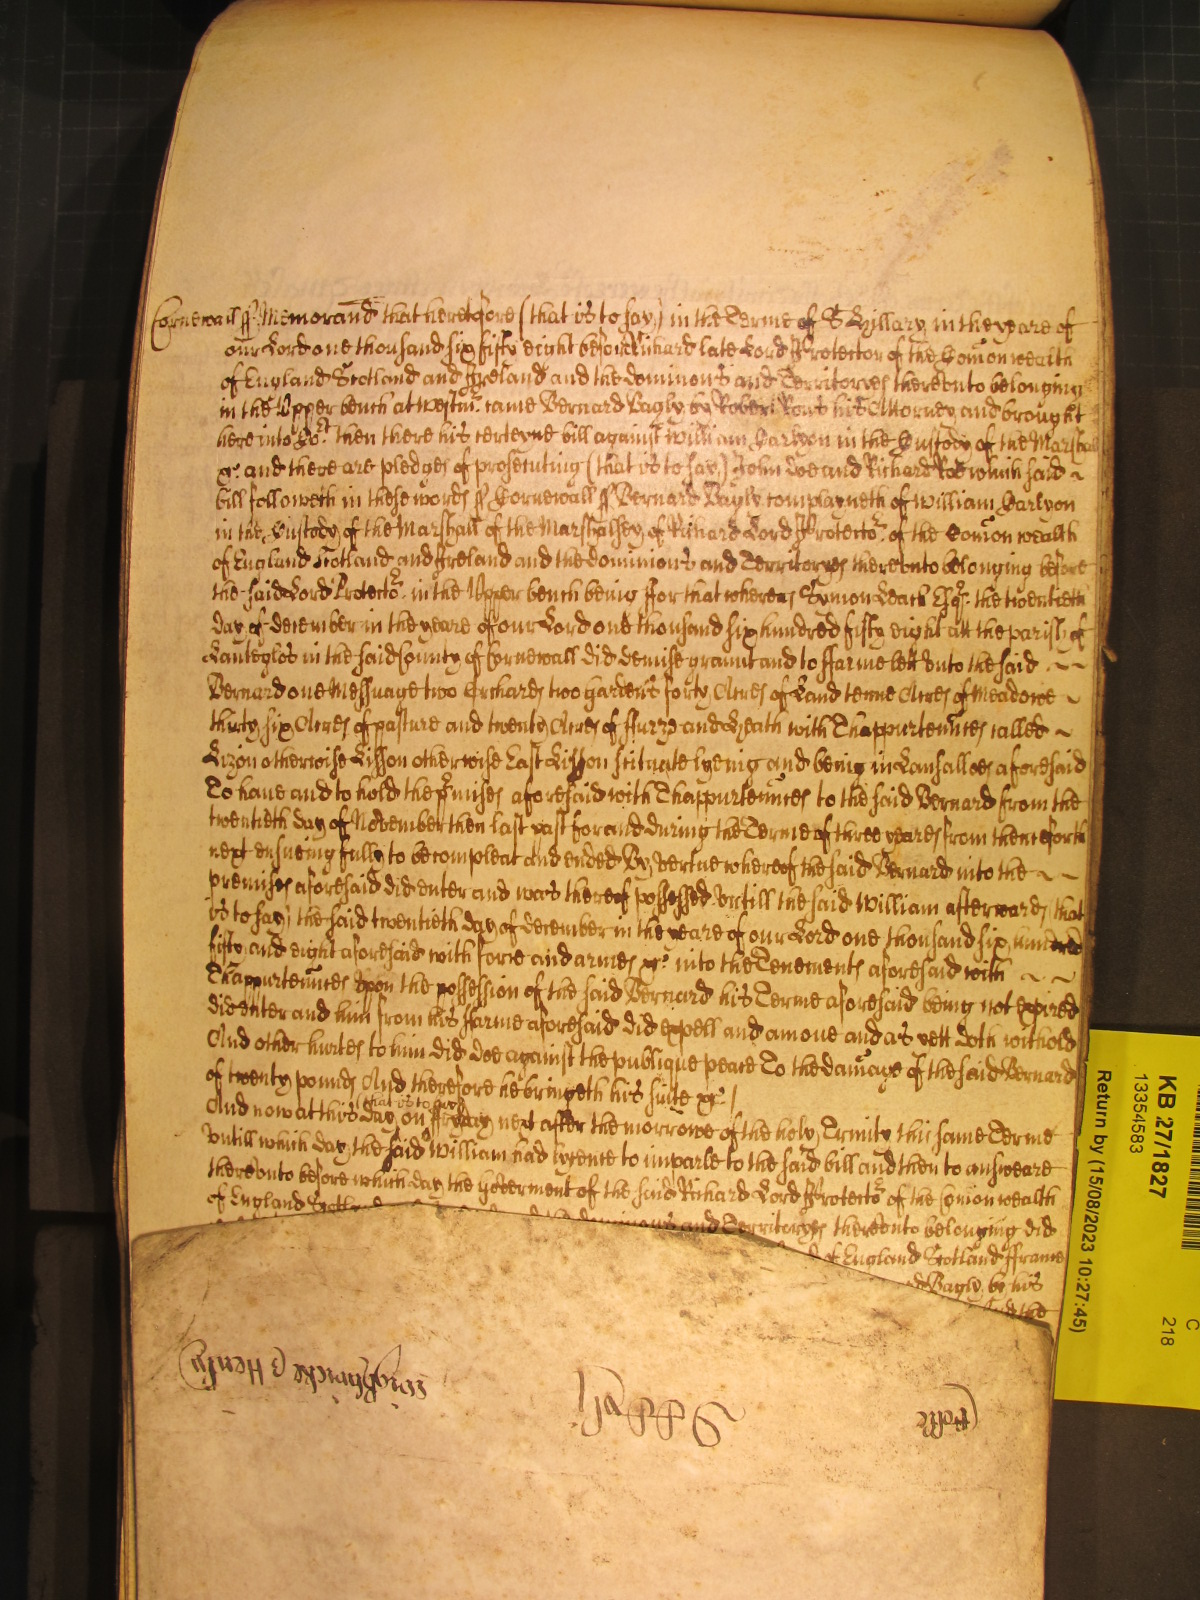 Cornewall ss Memorand that heretofore (that is to say) in the Terme of S Hillary in the yeare of
our Lord one thousand six fifty eight before Richard late Lord Protector of the Comon wealth
of England Scotland and Ireland and the dominions and Territoryes thereunto belonging
in the Upper bench at Westmr came Bernard Bagly by Robert Rows his Attorney and brought
here into Cort then there his certeyne bill against William Harlyon in the Custody of the Marshall
&c and there are pledges of prosecuting (that is to say) John Doe and Richard Roe which said ~
bill followeth in these words ss Cornewall ss Bernard Bagly complayneth of William Harlyon
in the Custody of the Marshall of the Marshalsey of Richard Lord Protector of the Comon wealth
of England Scotland and Ireland and the dominions and Territoryes thereunto belonging before
the said Lord Protector in the Upper bench being ffor that whereas Symon Leach Esqr the twentieth
day of december in the yeare of our Lord one thousand six hundred fifty eight att the parish of
Lanteglos in the said County of Cornewall did demise graunt and to ffarme lett unto the said ~~
Bernard one Messuage two Orchards two gardens forty Acres of Land tenne Acres of Meadowe ~
thirty six Acres of pasture and twenty Acres of ffurze and heath with Thappurtennces called ~
Lizon otherwise Lisson otherwise East Lisson scituate lyeing and being in Lansalloes aforesaid
To have and to hold the pmises aforesaid with Thappurtennces to the said Bernard from the
twentieth day of November then last past for and during the Terme of three yeares from thenceforth
next ensueing fully to be compleat and ended By vertue whereof the said Bernard into the ~~
premises aforesaid did enter and was thereof possessed Untill the said William afterwards that
is to say) the said twentieth day of december in the yeare of our Lord one thousand six hundred
fifty and eight aforesaid with force and armes &c into the Tenements aforesaid with ~~
Thappurtennces upon the possession of the said Bernard his Terme aforesaid being not expired
did enter and him from his ffarme aforesaid did expell and amove and as yett doth withold
And other hurtes to him did doe against the publique peace To the damage of the said Bernard
of twenty pounds And therefore he bringeth his suite &c /
And now at this day (that is to say) on ffryday next after the morrowe of the holy Trinity this same Terme
Untill which day the said William had lycence to imparle to the said bill and then to answeare
thereunto before which day the goverment of the said Richard Lord Protector of the Comon wealth
of England Scotland and the dominions and Territoryes thereunto belonging did
of England Scotland ffrance
Bagly by his
the
Rolle
KB 27/1827
13354583
C
218
Return by (15/08/2023 10:27:45)